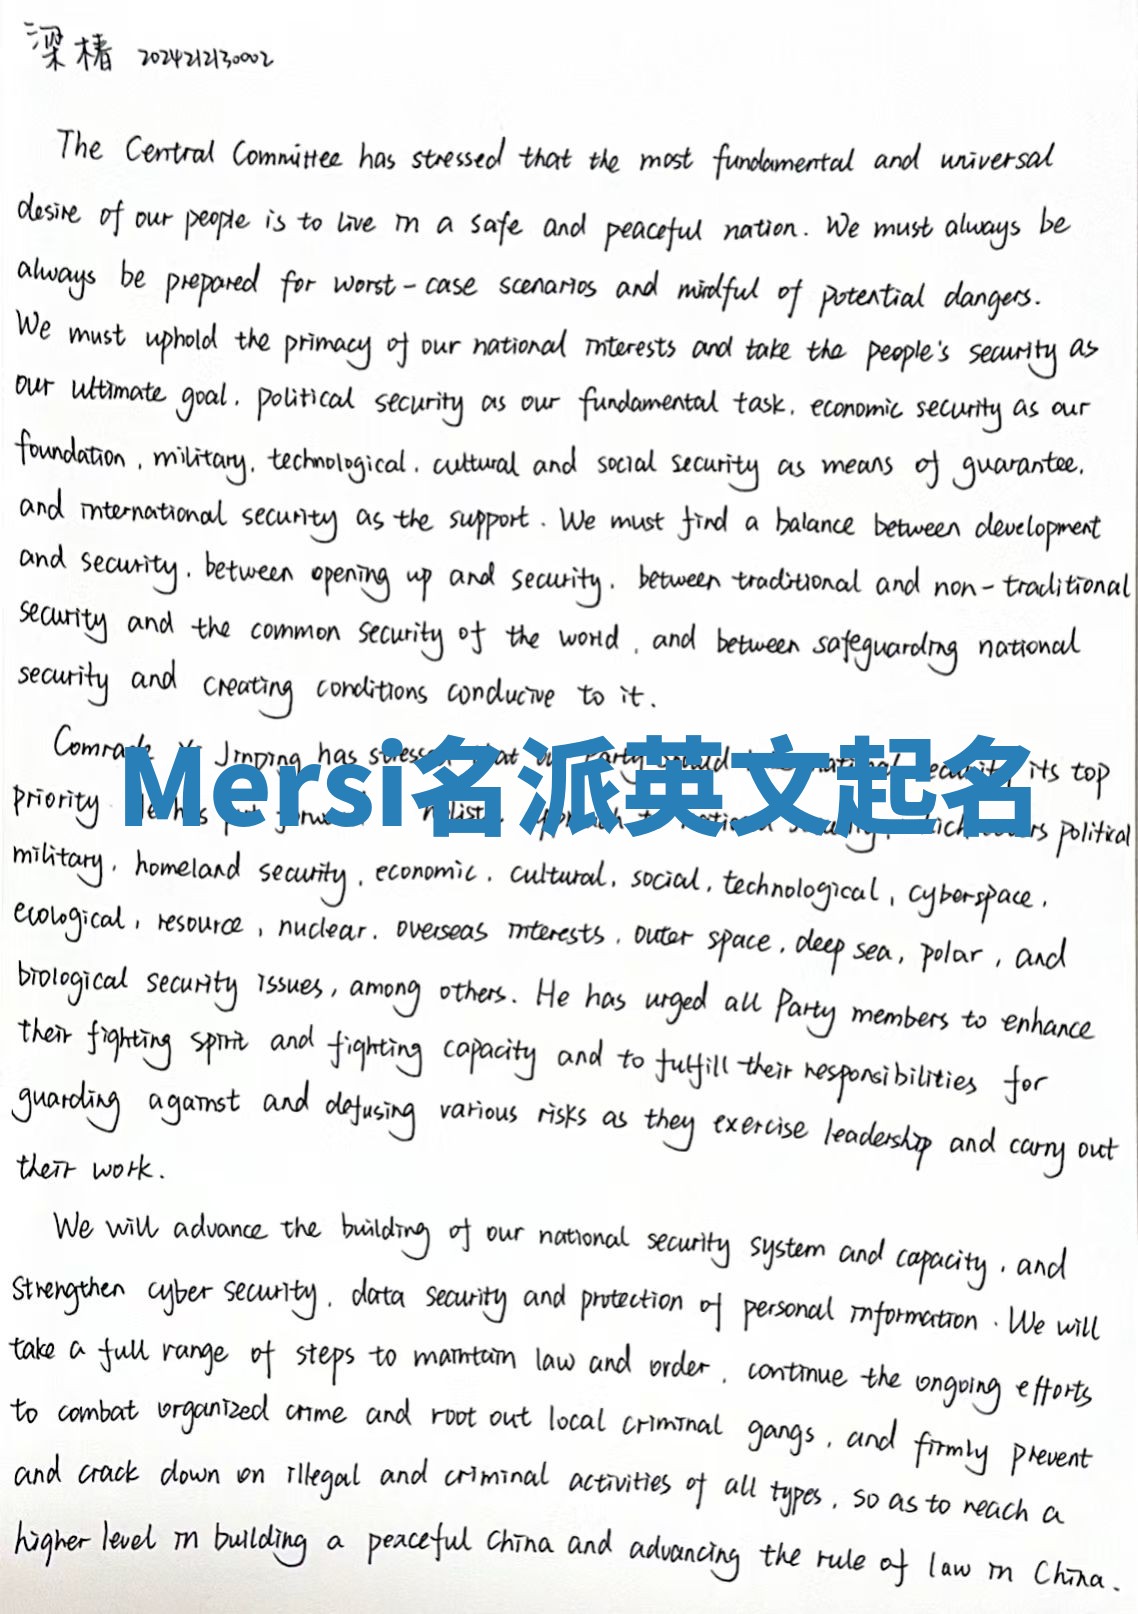 梁椿 2024212130002
The Central Committee has stressed that the most fundamental and universal
desire of our people is to live in a safe and peaceful nation. We must always be
always be prepared for worst-case scenarios and mindful of potential dangers.
We must uphold the primacy of our national interests and take the people's security as
our ultimate goal, political security as our fundamental task, economic security as our
foundation, military, technological, cultural and social security as means of guarantee,
and international security as the support. We must find a balance between development
and security, between opening up and security, between traditional and non-traditional
security and the common security of the world, and between safeguarding national
security and creating conditions conducive to it.
Comrade Jinping has its top
Mersi名派英文起名
priority political
military, homeland security, economic, cultural, social, technological, cyberspace,
ecological, resource, nuclear, overseas interests, outer space, deep sea, polar, and
biological security issues, among others. He has urged all Party members to enhance
their fighting spirit and fighting capacity and to fulfill their responsibilities for
guarding against and defusing various risks as they exercise leadership and carry out
their work.
We will advance the building of our national security system and capacity, and
strengthen cyber security, data security and protection of personal information. We will
take a full range of steps to maintain law and order, continue the ongoing efforts
to combat organized crime and root out local criminal gangs, and firmly prevent
and crack down on illegal and criminal activities of all types, so as to reach a
higher level in building a peaceful China and advancing the rule of law in China.